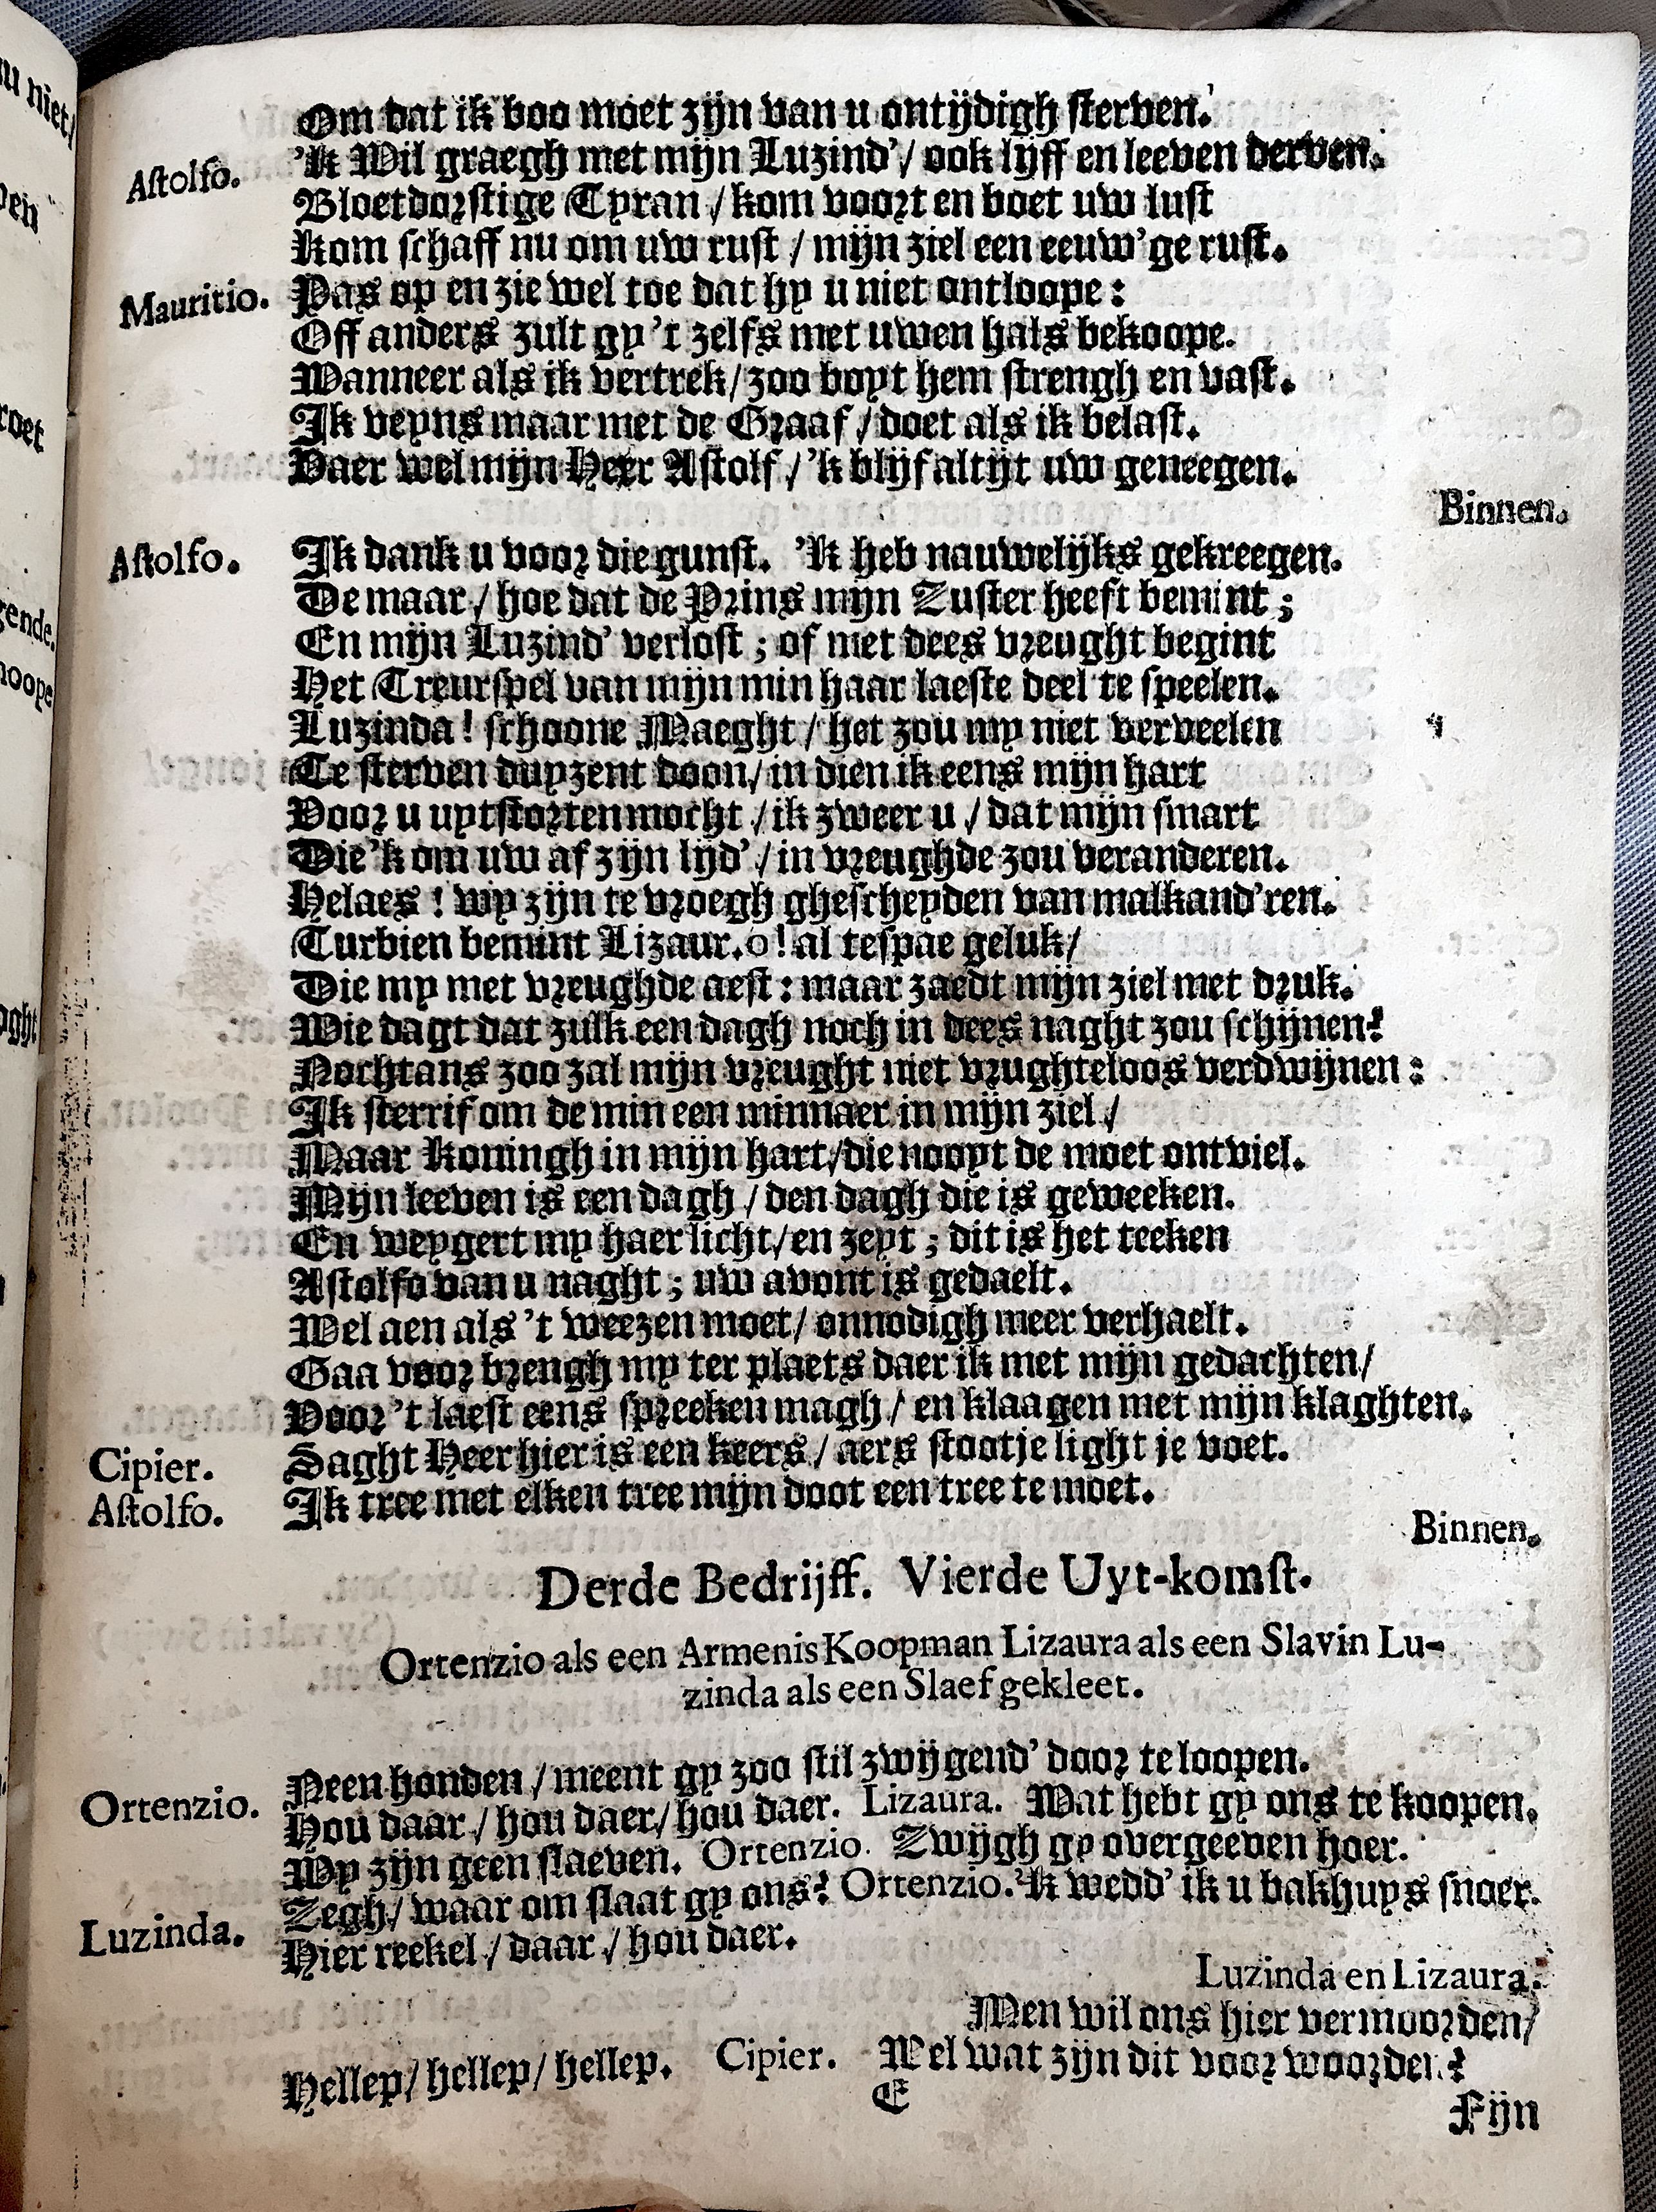 Om dat ik doo moet zijn van u ontijdigh sterven.
Astolfo. 'k Wil graegh met mijn Luzind' / ook lijff en leeven derven.
Bloetdorstige Tyran / kom voort en boet uw lust
Kom schaff nu om uw rust / mijn ziel een eeuw'ge rust.
Mauritio. Pas op en zie wel toe dat hy u niet ontloope:
Off anders zult gy 't zelfs met uwen hals bekoope.
Wanneer als ik vertrek / zoo boyt hem strengh en vast.
Ik veyns maar met de Graaf / doet als ik belast.
Vaer wel mijn Heer Astolf / 'k blijf altijt uw geneegen.
Binnen.
Astolfo. Ik dank u voor die gunst. 'k heb nauwelijks gekreegen.
De maar / hoe dat de Prins mijn Zuster heeft bemint;
En mijn Luzind' verlost; of met dees vreught begint
Het Treurspel van mijn min haar laeste deel te speelen.
Luzinda! schoone Maeght / het zou my niet verveelen
Te sterven duyzent doon / in dien ik eens mijn hart
Voor u uytstorten mocht / ik zweer u / dat mijn smart
Die 'k om uw af zijn lijd' / in vreughde zou veranderen.
Helaes! wy zijn te vroegh ghescheyden van malkand'ren.
Turbien bemint Lizaur. o! al te spae geluk /
Die my met vreughde aest: maar zaedt mijn ziel met druk.
Wie dagt dat zulk een dagh noch in dees naght zou schijnen?
Nochtans zoo zal mijn vreught niet vrughteloos verdwijnen:
Ik sterrif om de min een minnaer in mijn ziel /
Maar Koningh in mijn hart / die nooyt de moet ontviel.
Mijn leeven is een dagh / den dagh die is geweeken.
En weygert my haer licht / en zeyt; dit is het teeken
Astolfo van u naght; uw avont is gedaelt.
Wel aen als 't weezen moet / onnodigh meer verhaelt.
Gaa voor brengh my ter plaets daer ik met mijn gedachten /
Voor 't laest eens spreeken magh / en klaagen met mijn klaghten.
Cipier. Saght Heer hier is een keers / aers stootje light je voet.
Astolfo. Ik tree met elken tree mijn doot een tree te moet.
Binnen.
Derde Bedrijff. Vierde Uyt-komst.
Ortenzio als een Armenis Koopman Lizaura als een Slavin Lu-
zinda als een Slaef gekleet.
Ortenzio. Neen honden / meent gy zoo stil zwijgend' door te loopen.
Hou daar / hou daer / hou daer. Lizaura. Wat hebt gy ons te koopen.
Wy zijn geen slaeven. Ortenzio. Zwijgh gy overgeeven hoer.
Luzinda. Zegh / waar om slaat gy ons? Ortenzio. 'k wedd' ik u bakhuys snoer.
Hier reekel / daar / hou daer.
Luzinda en Lizaura.
Men wil ons hier vermoorden /
Hellep / hellep / hellep. Cipier. Wel wat zijn dit voor woorden?
E
Fijn